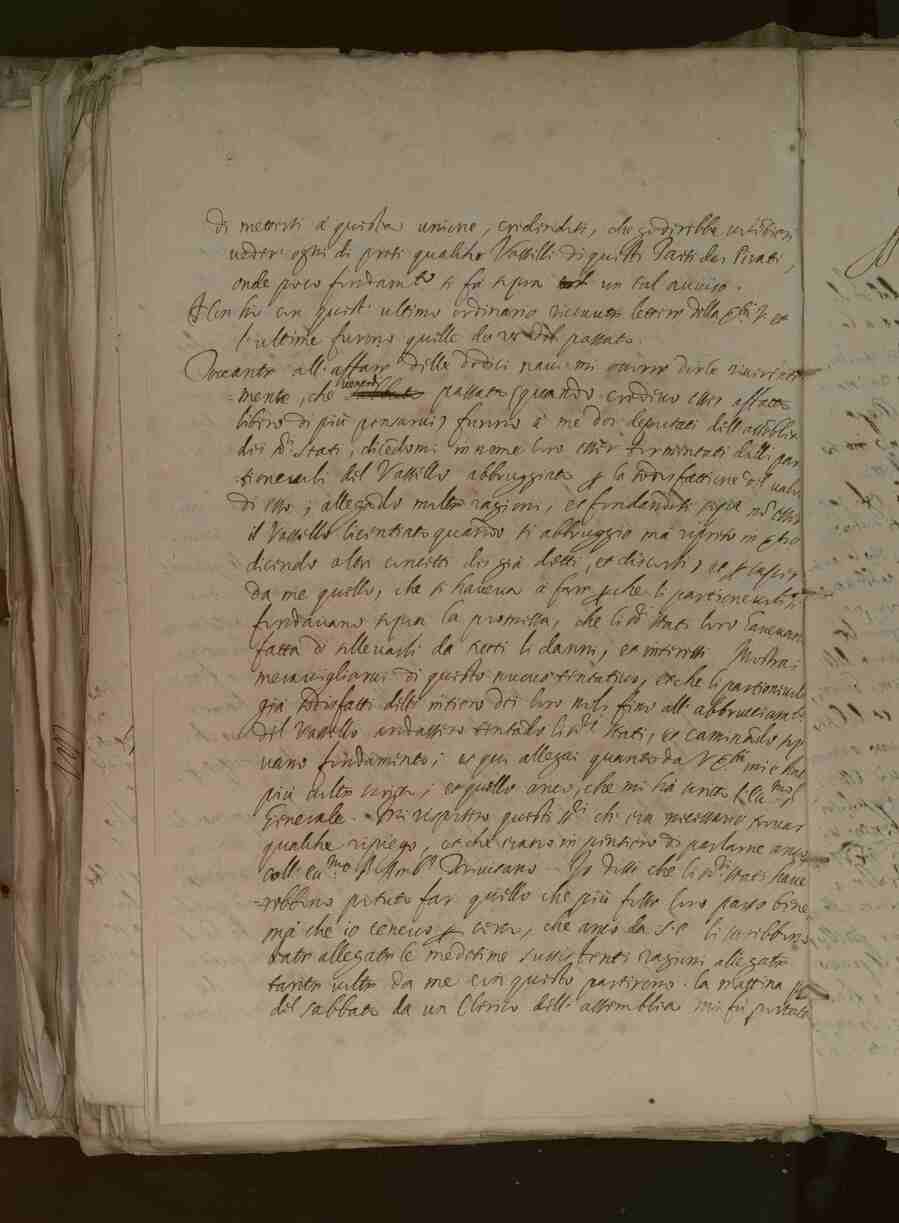 di mettersi à questa unione, credendosi, che godirebbe
veder ogni dì presi qualche Vasselli di questi Paesi da Pirati,
onde poco fundamto si fà sopra un tal avviso.
con quest' ultimo ordinario ricevuto lettere della et
l'ultime furono quelle de passato.
Toccante all'affare delle dodici navi mi occorre dirle riverente
=mente, che venerdì passato (quando credevo esser affatto
libero di più pensarvi) furono à me doi deputati dell'assemblea
dei Stati, dicendomi in nome loro esser tormentati dalli par
=tionevoli del Vassello abbruggiato la sodisfattione del valor
di esso; allegando molte ragioni, et fundandosi sopra nō esser
il Vassello licentiato quando si abbruggiò mà
dicendo altri concetti disgià detti, et discussi, et
da me quello, che si haveva à fare li partionevoli si
fundavano sopra la promessa, che li Stati loro havevano
fatta di sollevarli da tutti li danni, et interessi Mostrai
meravigliarmi di questo nuovo tentativo, et che li partionevoli
già sodisfatti dell' intiero dei loro noli fino all' abbrucciamto
del Vassello andassero tentado li Stati, et caminādo sop
vano fundamento; et qui allegai quanto da V Etā mi è stat
più volte scritto, et quello anco, che mi hà scritto
Generale. Mi risposero questi che era necessario trovar
qualche ripiego, et che erano in pensiero di parlarne anco
coll' Ecc.mo S. Amb.r Trivisano. Io dissi che li Stati have
=rebbero potuto far quello che più fosse loro parso bene
mà che io tenevo certo, che anco da S.E. li sarebbero
state allegate le medesime sussistenti ragioni allegate
tante volte da me con questo partirono. la mattina
del sabbato da un Clerico dell' assemblea mi fù portata